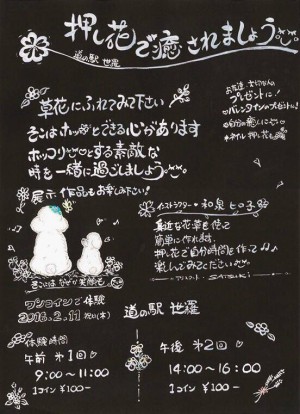 押し花で癒されましょう
道の駅 世羅
お友達、大切な人の
プレゼントに!
バレンタインのプレゼントに!
草花にふれてみて下さい
そこはホッとできる心があります
ホッコリとする素敵な
時を一緒に過ごしましょう
展示作品もお楽しみ下さい!
インストラクター
和泉ヒロ子
身近な花草を使って
簡単に作れます
押し花で自分時間を作って
楽しんでみてください
ワンコインで体験
2016.2.11 祝(木)
道の駅 世羅
体験時間
午前 第1回
9:00〜11:00
1コイン ¥100-
午後 第2回
14:00〜16:00
1コイン ¥100-